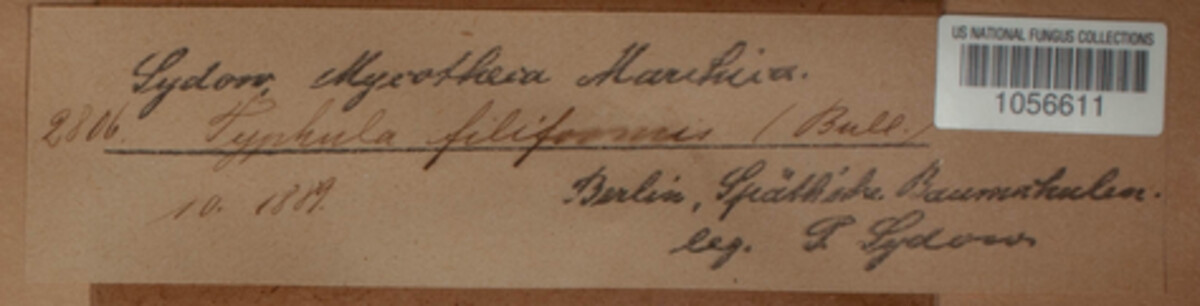 Sydow, Mycotheca Marchica.
US NATIONAL FUNGUS COLLECTIONS
1056611
2806. Typhula filiformis (Bull.)
10. 1889.
Berlin, Späth'sche Baumschulen.
leg. P. Sydow